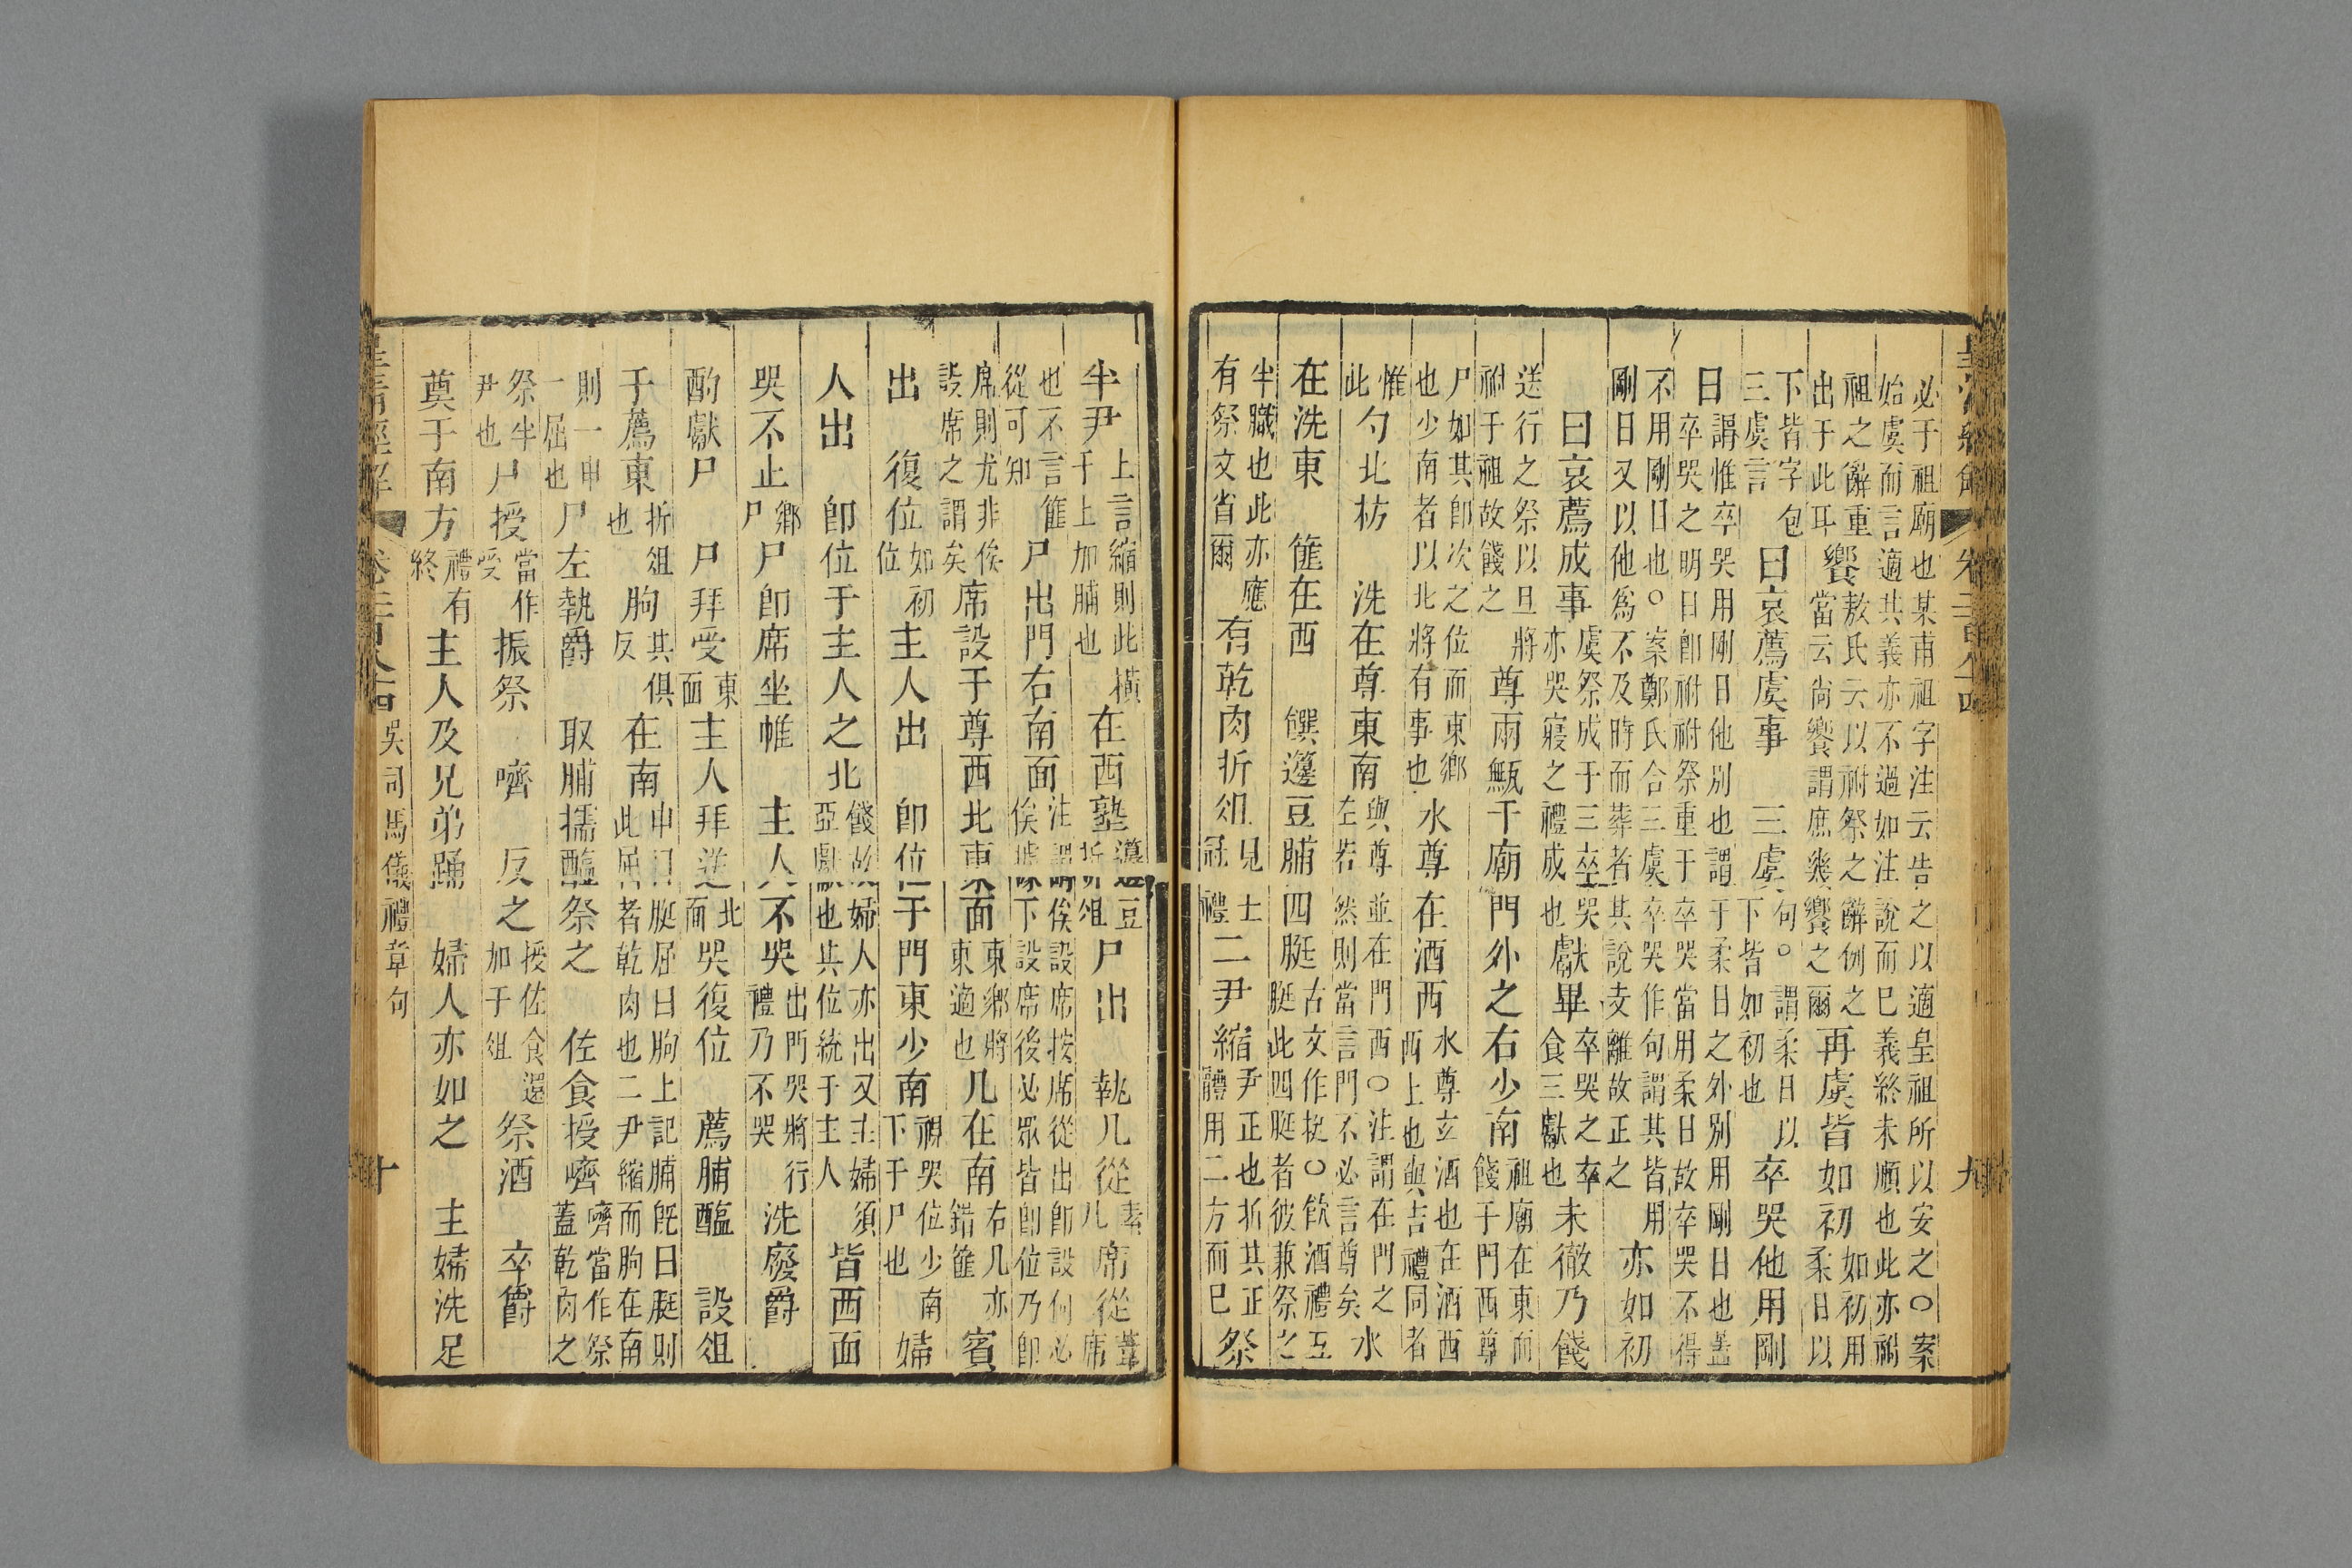 皇清經解 卷二百八十四 九
必于祖廟也某甫祖字注云告之以適皇祖所以安之○案
始虞而言適其義亦不過如注說而已義終未順也此亦祔
祖之辭重出于此耳饗敖氏云以祔祭之辭例之當云尚饗謂庶幾饗之爾再虞皆如初如初用柔日以
下皆字包三虞言曰哀薦虞事三虞句○謂柔日以下皆如初也卒哭他用剛
日謂惟卒哭用剛日他別也謂于柔日之外別用剛日也蓋卒哭之明日卽祔祔祭重于卒哭當用柔日故卒哭不得
不用剛日也○案鄭氏合三虞卒哭作句謂其皆用剛日又以他爲不及時而葬者其說支離故正之亦如初
曰哀薦成事虞祭成于三卒哭亦哭寢之禮成也獻畢卒哭之卒食三獻也未徹乃餞
送行之祭以旦將祔于祖故餞之尊兩甒于廟門外之右少南祖廟在東而餞于門西尊
尸如其卽次之位而東鄉也少南者以北將有事也水尊在酒西水尊立酒也在酒西西上也與吉禮同者
惟此勺北枋洗在尊東南與尊並在門西○注謂在門之左若然則當言門不必言尊矣水
在洗東篚在西饌籩豆脯四脡古文作挺○飲酒禮五脡此四脡者彼兼祭之
半職也此亦應有祭文省爾有乾肉折俎見士冠禮二尹縮尹正也折其正體用二方而已祭
半尹上言縮則此橫于上加脯也在西塾籩豆折俎尸出執几從素几席從葦席
也不言篚從可知尸出門右南面注謂俟設席按席從出卽設何必俟據下設席後必眾皆卽位乃卽
席則尤非俟設席之謂矣席設于尊西北東面東鄉將東適也几在南右几亦錯篚賓
出復位如初位主人出卽位于門東少南視哭位少南下于尸也婦
人出卽位于主人之北餞故婦人亦出又主婦須亞獻也其位統于主人皆西面
哭不止鄉尸尸卽席坐惟主人不哭出門哭將行禮乃不哭洗廢爵
酌獻尸尸拜受東面主人拜送北面哭復位薦脯醢設俎
于薦東折俎也朐其俱反在南申曰脡屈曰朐上記脯旣曰脡則此屈者乾肉也二尹縮而朐在南
則一申一屈也尸左執爵取脯擩醢祭之佐食授嚌嚌當作祭蓋乾肉之
祭半尹也尸授當作受振祭嚌反之授佐食還加于俎祭酒卒爵
奠于南方禮有終主人及兄弟踊婦人亦如之主婦洗足
皇清經解 卷二百八十四 吳司馬儀禮章句 十